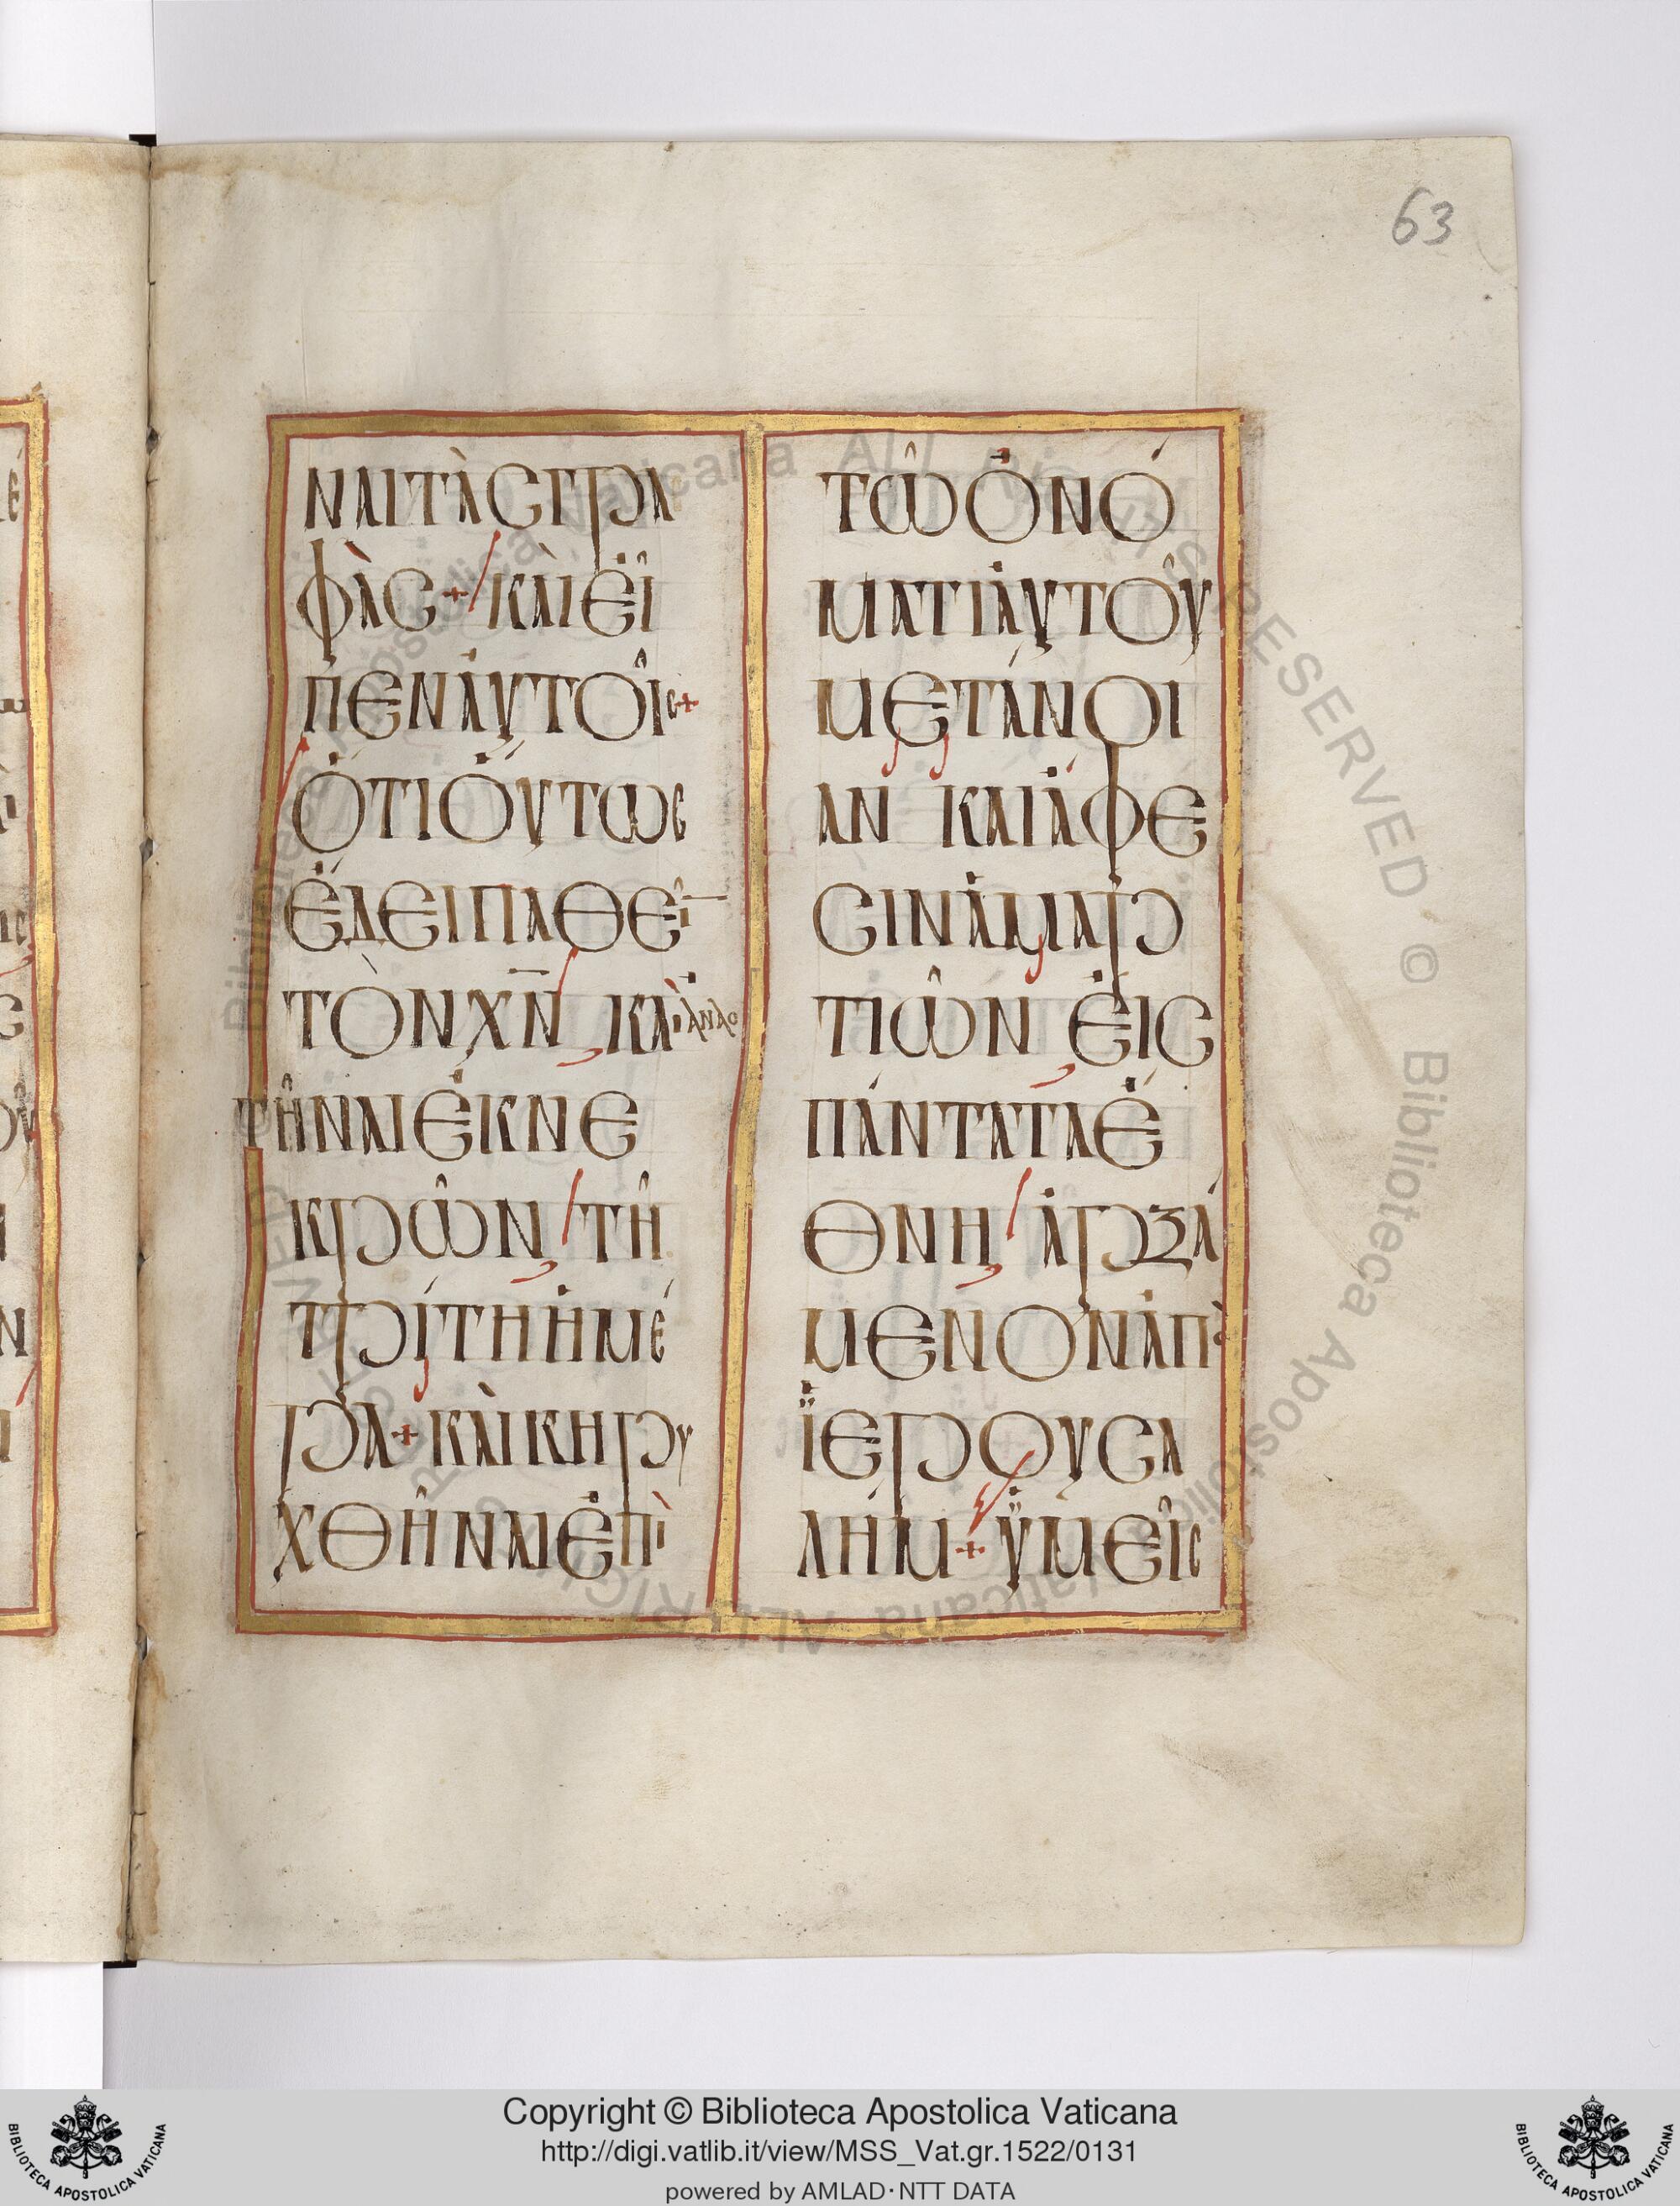 63
ΝΑΙΤᾺСΓΡΑ
ΦᾺС+ΚΑῚἘΙ͂
ΠΕΝἈΥΤΟΙ͂С+
ὍΤΙὍΥΤΩС
ἜΔΕΙΠΑΘΕΙ͂
ΤῸΝΧ̅Ν̅ ΚΑῚἈΝΑС
ΤΗ͂ΝΑΙἘΚΝΕ
ΚΡΩ͂Ν ΤΗ͂
ΤΡΊΤΗἩΜΈ
ΡΑ+ΚΑῚΚΗΡΥ
ΧΘΗ͂ΝΑΙἘΠῚ
ΤΩ͂ὈΝΌ
ΜΑΤΙἈΥΤΟΥ͂
ΜΕΤΆΝΟΙ
ΑΝ ΚΑΙἌΦΕ
СΙΝἉΜΑΡ
ΤΙΩ͂Ν ἘΙС
ΠΆΝΤΑΤΑἜ
ΘΝΗ ἈΡΞΆ
ΜΕΝΟΝἈΠῸ
ἹΕΡΟΥСΑ
ΛΉΜ+ὙΜΕΙ͂С
Copyright © Biblioteca Apostolica Vaticana
http://digi.vatlib.it/view/MSS_Vat.gr.1522/0131
powered by AMLAD·NTT DATA
BIBLIOTECA APOSTOLICA VATICANA
BIBLIOTECA APOSTOLICA VATICANA